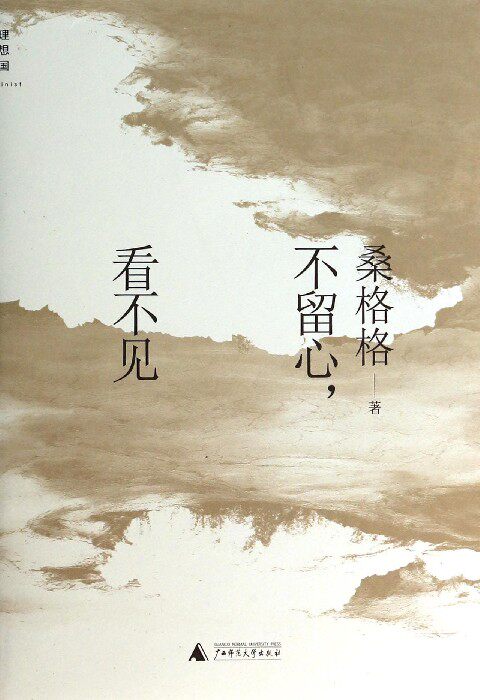 理想国
inist
桑格格 著
不留心，
看不见
GUANGXI NORMAL UNIVERSITY PRESS
广西师范大学出版社